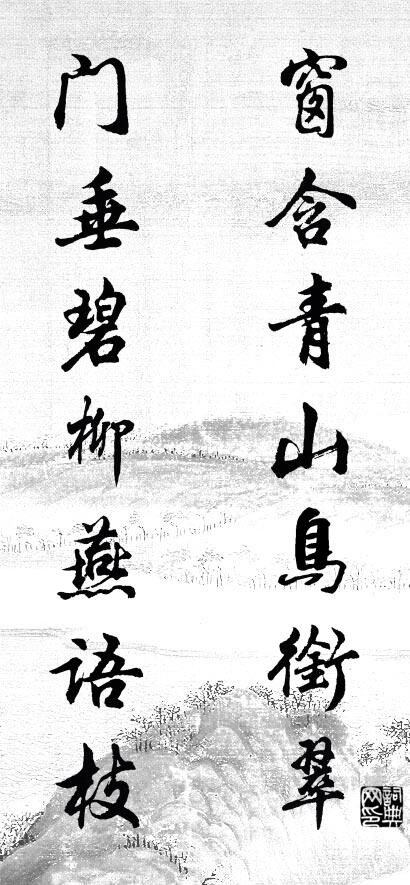 窗含青山鳥銜翠
门垂碧柳燕语枝
詞典网